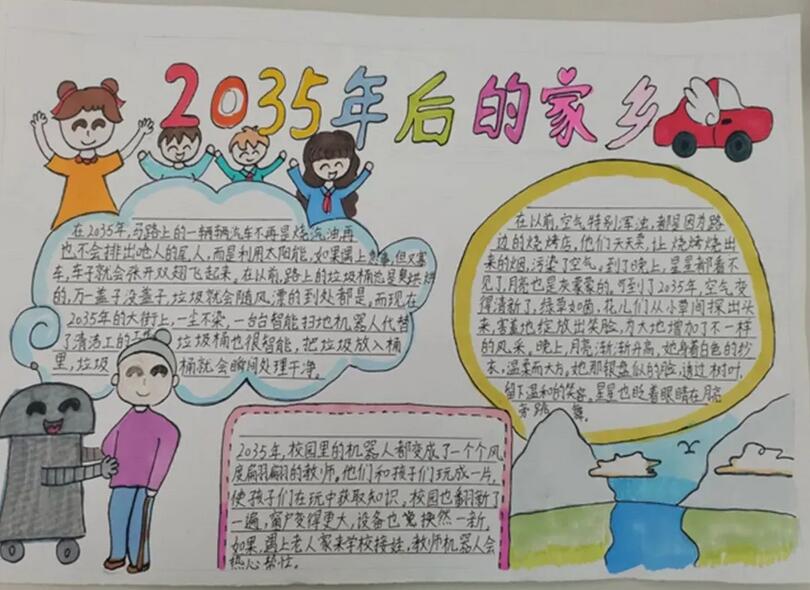 2035年后的家乡
在2035年,马路上的一辆辆汽车不再是烧汽油再
也不会排出呛人的尾人,而是利用太阳能,如果遇上急事,但又塞
车,车子就会张开双翅飞起来。在以前,路上的垃圾桶总是臭烘烘
的,万一盖子没盖子,垃圾就会随风漂的到处都是,而现在
2035年的大街上,一尘不染,一台台智能扫地机器人代替
了清洁工的工作 垃圾桶也很智能,把垃圾放入桶
里,垃圾 桶就会瞬间处理干净。
在以前,空气特别浑浊,都是因为路
边的烧烤店,他们天天卖,让烧烤烧出
来的烟,污染了空气。到了晚上,星星都看不
见了,月亮也是灰蒙蒙的。可到了2035年,空气变
得清新了,绿草如茵,花儿们从小草间探出头
来,害羞地绽放出笑脸,为大地增加了不一样
的风采。晚上,月亮渐渐升高,她身着白色的纱
衣,温柔而大方。她那银盘似的脸,透过树叶,
留下温和的笑容,星星也眨着眼睛在月亮
旁跳 舞。
2035年,校园里的机器人都变成了一个个风
度翩翩的教师,他们和孩子们玩成一片,
使孩子们在玩中获取知识,校园也翻新了
一遍,窗户变得更大,设备也焕然一新,
如果,遇上老人家来学校接娃,教师机器人会
热心帮忙。